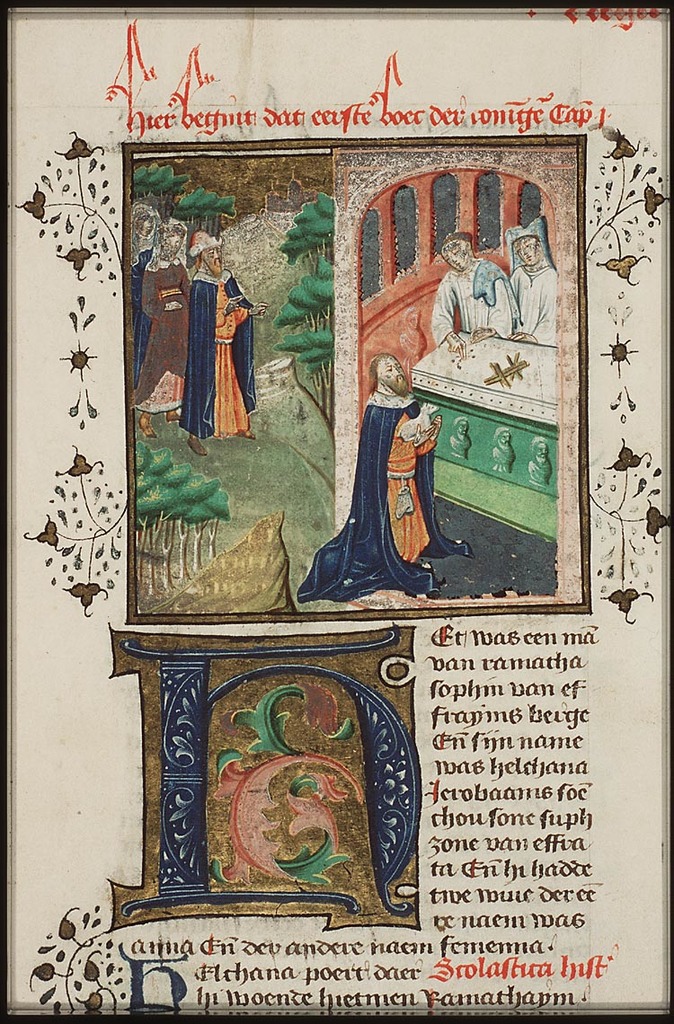 hier beghint dat eerste boec der coninge Cap i
Et was een mā
van ramatha
sophim van ef
frayms berge
En̄ sijn name
was helchana
Ierobaams soē
thou sone suph
zone van effra
ta En̄ hi hadde
twe wiue der eē
re naem was
anna En̄ der andere naem fenenna.
Elchana poert daer Scolastica hist'
hi woende hietmen Ramathaym.